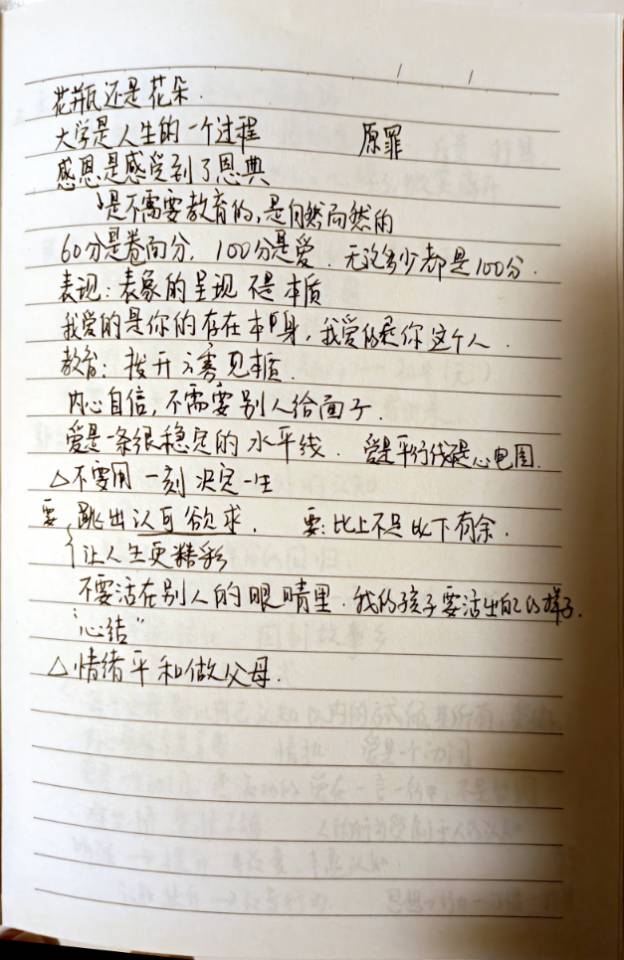 花瓶还是花朵.
大学是人生的一个过程 原罪
感恩是感受到了恩典
是不需要教育的,是自然而然的
60分是卷面分, 100分是爱. 无论多少都是100分.
表现:表象的呈现 不是 本质
我爱的是你的存在本身,我爱的是你这个人.
教育:拨开云雾见本质.
内心自信,不需要别人给面子.
爱是一条很稳定的水平线. 爱是平行线不是心电图.
△不要用 一刻 决定一生
要, 跳出认可欲求. 要:比上不足比下有余.
让人生更精彩
不要活在别人的眼睛里. 我的孩子要活出自己的样子.
"心结"
△情绪平和做父母.